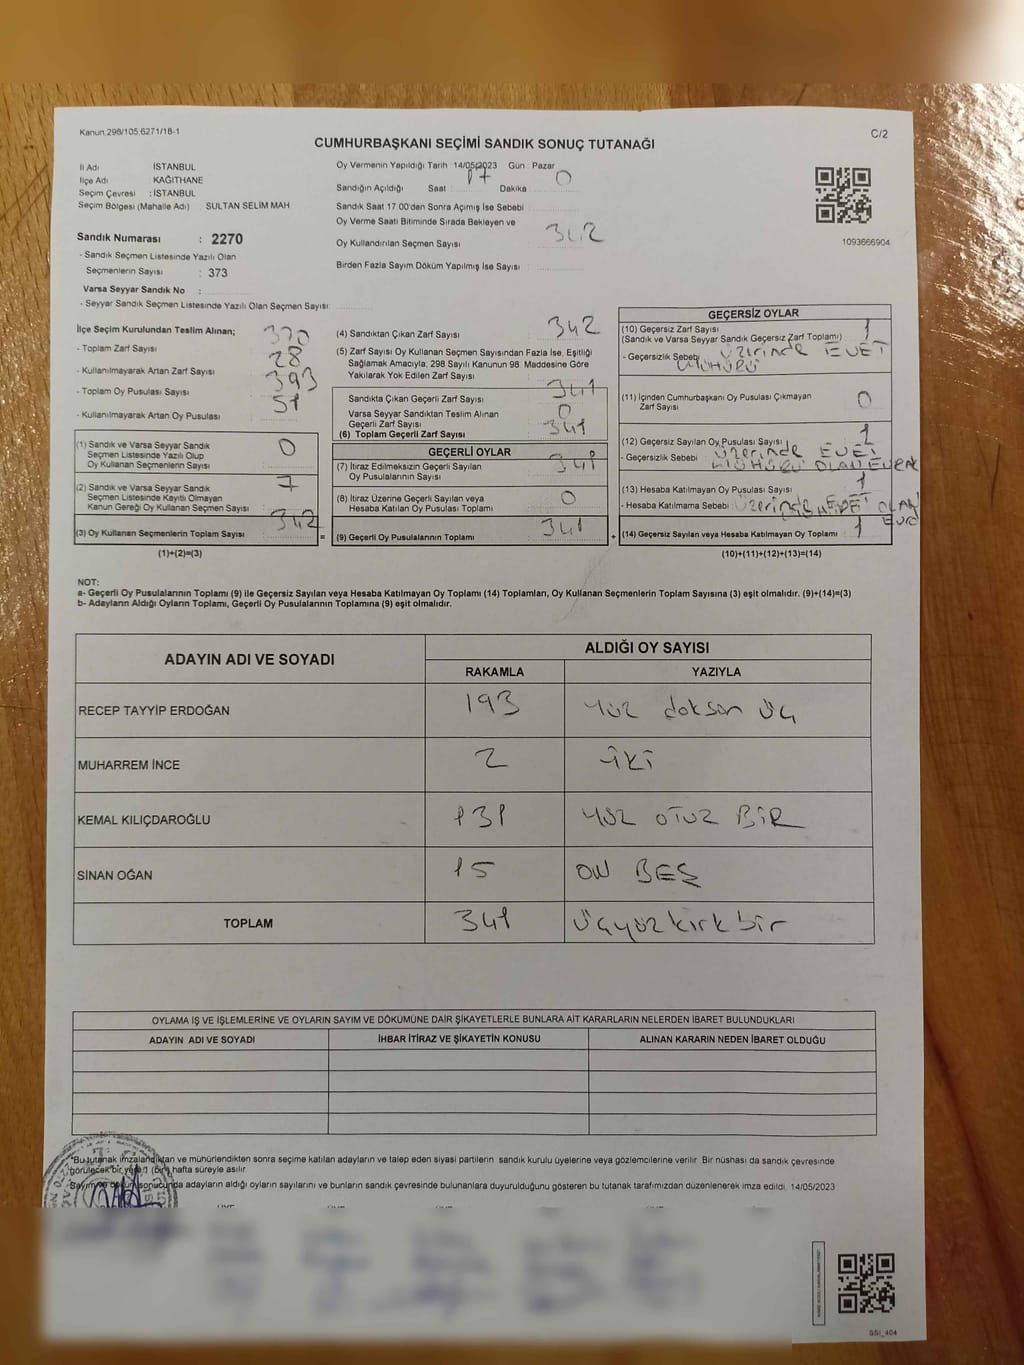 Kanun.298/105,6271/18-1
C/2
CUMHURBAŞKANI SEÇİMİ SANDIK SONUÇ TUTANAĞI
İl Adı İSTANBUL
İlçe Adı KAĞITHANE
Seçim Çevresi : İSTANBUL
Seçim Bölgesi (Mahalle Adı) SULTAN SELİM MAH
Sandık Numarası : 2270
- Sandık Seçmen Listesinde Yazılı Olan
Seçmenlerin Sayısı : 373
Varsa Seyyar Sandık No :
- Seyyar Sandık Seçmen Listesinde Yazılı Olan Seçmen Sayısı:
Oy Vermenin Yapıldığı Tarih 14/05/2023 Gün : Pazar
Sandığın Açıldığı Saat 17 Dakika 0
Sandık Saat 17.00'den Sonra Açımış İse Sebebi
Oy Verme Saati Bitiminde Sırada Bekleyen ve
Oy Kullandırılan Seçmen Sayısı 342
Birden Fazla Sayım Döküm Yapılmış İse Sayısı
1093666904
İlçe Seçim Kurulundan Teslim Alınan;
- Toplam Zarf Sayısı 370
- Kullanılmayarak Artan Zarf Sayısı 28
- Toplam Oy Pusulası Sayısı 393
- Kullanılmayarak Artan Oy Pusulası 51
(1) Sandık ve Varsa Seyyar Sandık
Seçmen Listesinde Yazılı Olup
Oy Kullanan Seçmenlerin Sayısı 0
(2) Sandık ve Varsa Seyyar Sandık
Seçmen Listesinde Kayıtlı Olmayan
Kanun Gereği Oy Kullanan Seçmen Sayısı 7
(3) Oy Kullanan Seçmenlerin Toplam Sayısı 342
(1)+(2)=(3)
(4) Sandıktan Çıkan Zarf Sayısı 342
(5) Zarf Sayısı Oy Kullanan Seçmen Sayısından Fazla İse, Eşitliği
Sağlamak Amacıyla, 298 Sayılı Kanunun 98. Maddesine Göre
Yakılarak Yok Edilen Zarf Sayısı
Sandıkta Çıkan Geçerli Zarf Sayısı 341
Varsa Seyyar Sandıktan Teslim Alınan
Geçerli Zarf Sayısı 0
(6) Toplam Geçerli Zarf Sayısı 341
GEÇERLİ OYLAR
(7) İtiraz Edilmeksizin Geçerli Sayılan
Oy Pusulalarının Sayısı 341
(8) İtiraz Üzerine Geçerli Sayılan veya
Hesaba Katılan Oy Pusulaları Toplamı 0
= (9) Geçerli Oy Pusulalarının Toplamı 341 +
GEÇERSİZ OYLAR
(10) Geçersiz Zarf Sayısı 1
(Sandık ve Varsa Seyyar Sandık Geçersiz Zarf Toplamı)
- Geçersizlik Sebebi üzerinde EVET
MÜHÜRÜ
(11) İçinden Cumhurbaşkanı Oy Pusulası Çıkmayan
Zarf Sayısı 0
(12) Geçersiz Sayılan Oy Pusulası Sayısı 1
- Geçersizlik Sebebi üzerinde EVET
MÜHÜRÜ OLAN EVRAK
(13) Hesaba Katılmayan Oy Pusulası Sayısı 1
- Hesaba Katılmama Sebebi üzerinde EVET OLAN
(14) Geçersiz Sayılan veya Hesaba Katılmayan Oy Toplamı 1
(10)+(11)+(12)+(13)=(14)
NOT:
a- Geçerli Oy Pusulalarının Toplamı (9) ile Geçersiz Sayılan veya Hesaba Katılmayan Oy Toplamı (14) Toplamları, Oy Kullanan Seçmenlerin Toplam Sayısına (3) eşit olmalıdır. (9)+(14)=(3)
b- Adayların Aldığı Oyların Toplamı, Geçerli Oy Pusulalarının Toplamına (9) eşit olmalıdır.
ADAYIN ADI VE SOYADI
ALDIĞI OY SAYISI
RAKAMLA YAZIYLA
RECEP TAYYİP ERDOĞAN 193 Yüz doksan üç
MUHARREM İNCE 2 iki
KEMAL KILIÇDAROĞLU 131 YÜZ OTUZ BİR
SİNAN OĞAN 15 ON BEŞ
TOPLAM 341 Üçyüzkırkbir
OYLAMA İŞ VE İŞLEMLERİNE VE OYLARIN SAYIM VE DÖKÜMÜNE DAİR ŞİKAYETLERLE BUNLARA AİT KARARLARIN NELERDEN İBARET BULUNDUKLARI
ADAYIN ADI VE SOYADI İHBAR İTİRAZ VE ŞİKAYETİN KONUSU ALINAN KARARIN NEDEN İBARET OLDUĞU
*Bu tutanak imzalandıktan ve mühürlendikten sonra seçime katılan adayların ve talep eden siyasi partilerin sandık kurulu üyelerine veya gözlemcilerine verilir. Bir nüshası da sandık çevresinde
görülecek bir yere 1 (bir) hafta süreyle asılır.
Sayım ve döküm sonucunda adayların aldığı oyların sayılarını ve bunların sandık çevresinde bulunanlara duyurulduğunu gösteren bu tutanak tarafımızdan düzenlenerek imza edildi. 14/05/2023
SSI_404